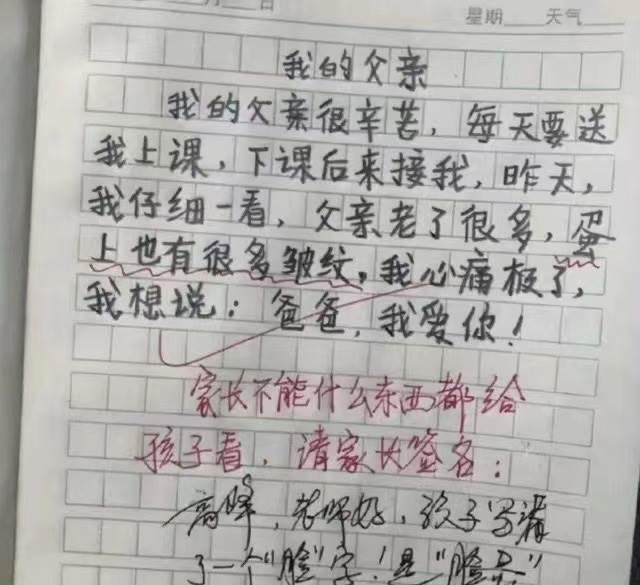 月 日 星期 天气
我的父亲
我的父亲很辛苦，每天要送
我上课，下课后来接我，昨天，
我仔细一看，父亲老了很多，蛋
上也有很多皱纹。我心痛极了，
我想说：爸爸，我爱你！
家长不能什么东西都给
孩子看，请家长签名：
高峰，老师好，孩子写错
了一个"脸"字！是"脸蛋"